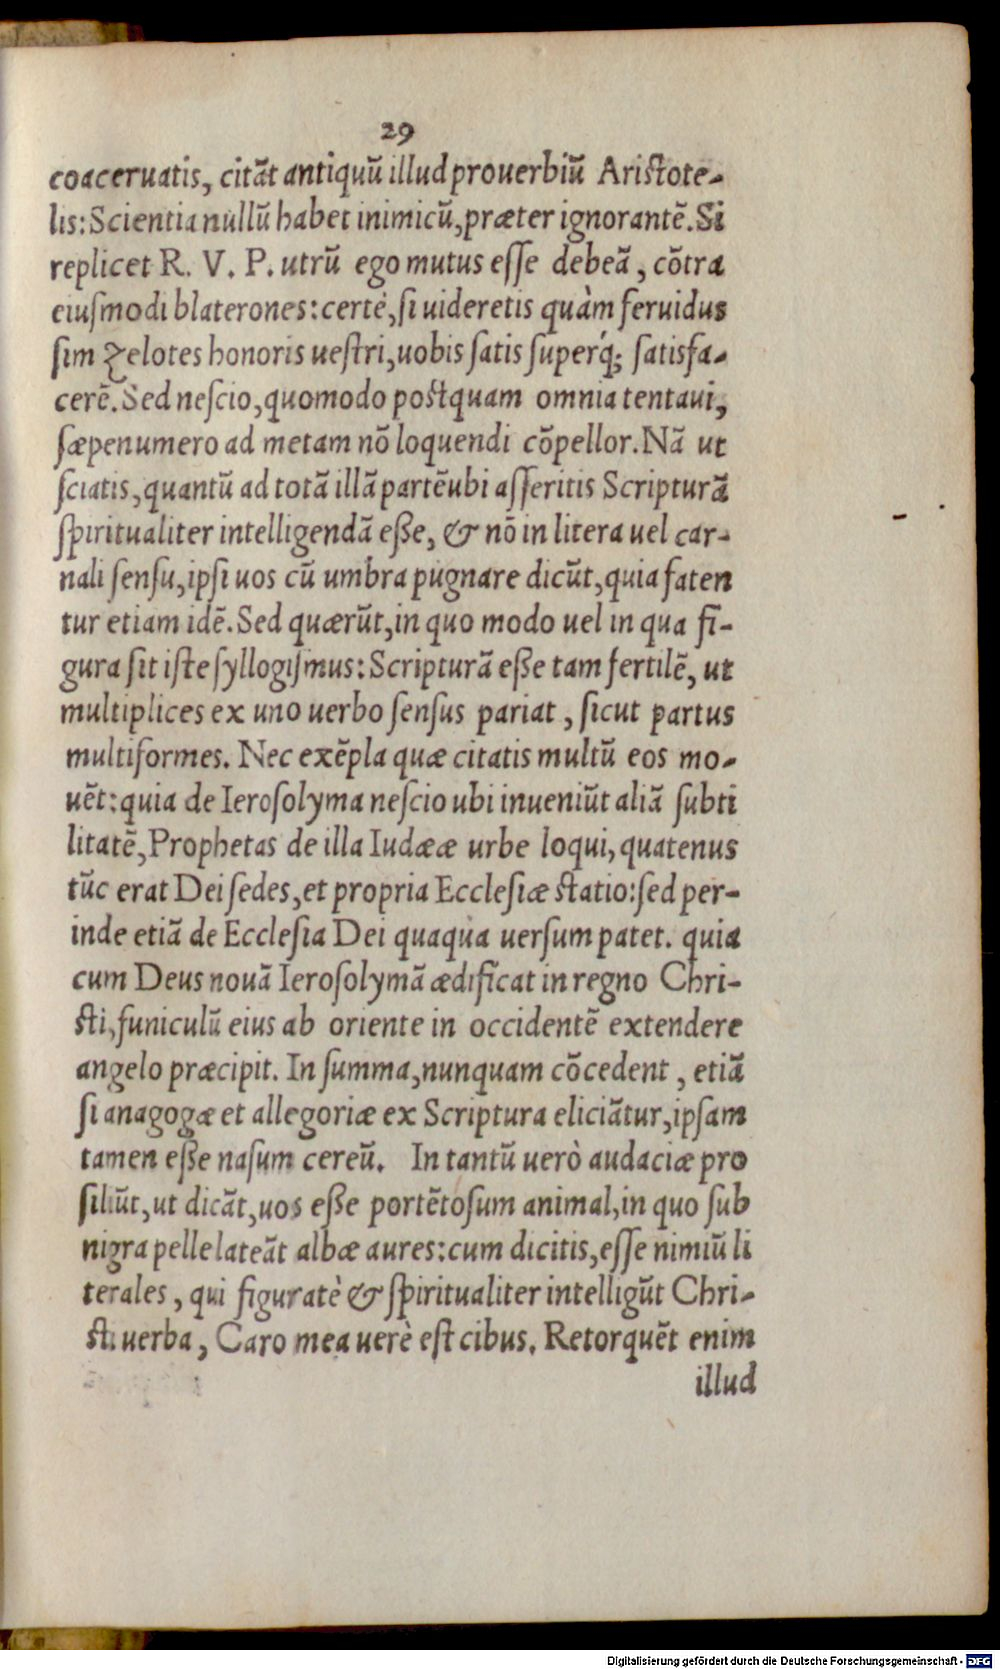 29
coaceruatis, citāt antiquū illud prouerbiū Aristote-
lis: Scientia nullū habet inimicū, præter ignorantē. Si
replicet R. V. P. utrū ego mutus eſſe debeā, cōtra
eiuſmodi blaterones: certè, ſi uideretis quàm feruidus
ſim zelotes honoris ueſtri, uobis ſatis ſuperq́; ſatisfa-
cerē. Sed neſcio, quomodo poſtquam omnia tentaui,
ſæpenumero ad metam nō loquendi cōpellor. Nā ut
ſciatis, quantū ad totā illā partē ubi aſſeritis Scripturā
ſpiritualiter intelligendā eße, & nō in litera uel car-
nali ſenſu, ipſi uos cū umbra pugnare dicūt, quia faten
tur etiam idē. Sed quærūt, in quo modo uel in qua fi-
gura ſit iſte ſyllogiſmus: Scripturā eße tam fertilē, ut
multiplices ex uno uerbo ſenſus pariat, ſicut partus
multiformes. Nec exēpla quæ citatis multū eos mo-
uēt: quia de Ieroſolyma neſcio ubi inueniūt aliā ſubti
litatē, Prophetas de illa Iudææ urbe loqui, quatenus
tūc erat Dei ſedes, et propria Eccleſiæ ſtatio: ſed per-
inde etiā de Eccleſia Dei quaqua uerſum patet. quia
cum Deus nouā Ieroſolymā ædificat in regno Chri-
ſti, funiculū eius ab oriente in occidentē extendere
angelo præcipit. In ſumma, nunquam cōcedent, etiā
ſi anagogæ et allegoriæ ex Scriptura eliciātur, ipſam
tamen eße naſum cereū. In tantū uerò audaciæ pro
ſiliūt, ut dicāt, uos eße portētoſum animal, in quo ſub
nigra pelle lateāt albæ aures: cum dicitis, eſſe nimiū li
terales, qui figuratè & ſpiritualiter intelligūt Chri-
ſti uerba, Caro mea uerè eſt cibus. Retorquēt enim
illud
Digitalisierung gefördert durch die Deutsche Forschungsgemeinschaft - DFG